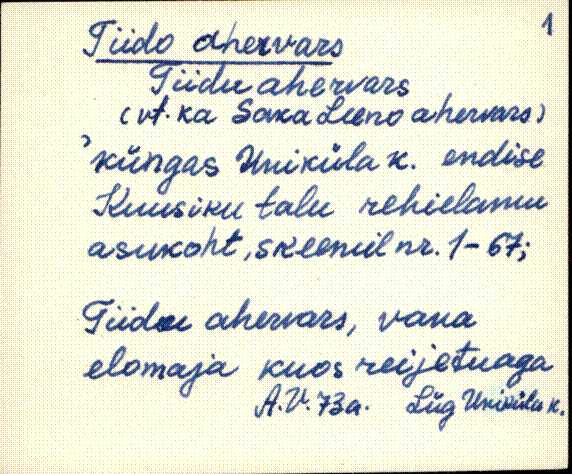 1
Tiido ahervars
Tiidu ahervars
(vt. ka Saka Leeno ahervars)
küngas Uniküla k. endise
Kuusiku talu rehielamu
asukoht, skeemil nr. 1-67;
Tiidu ahervars, vana
elomaja kuos reijetuaga
A.V. 73a. Lüg Uniküla k.